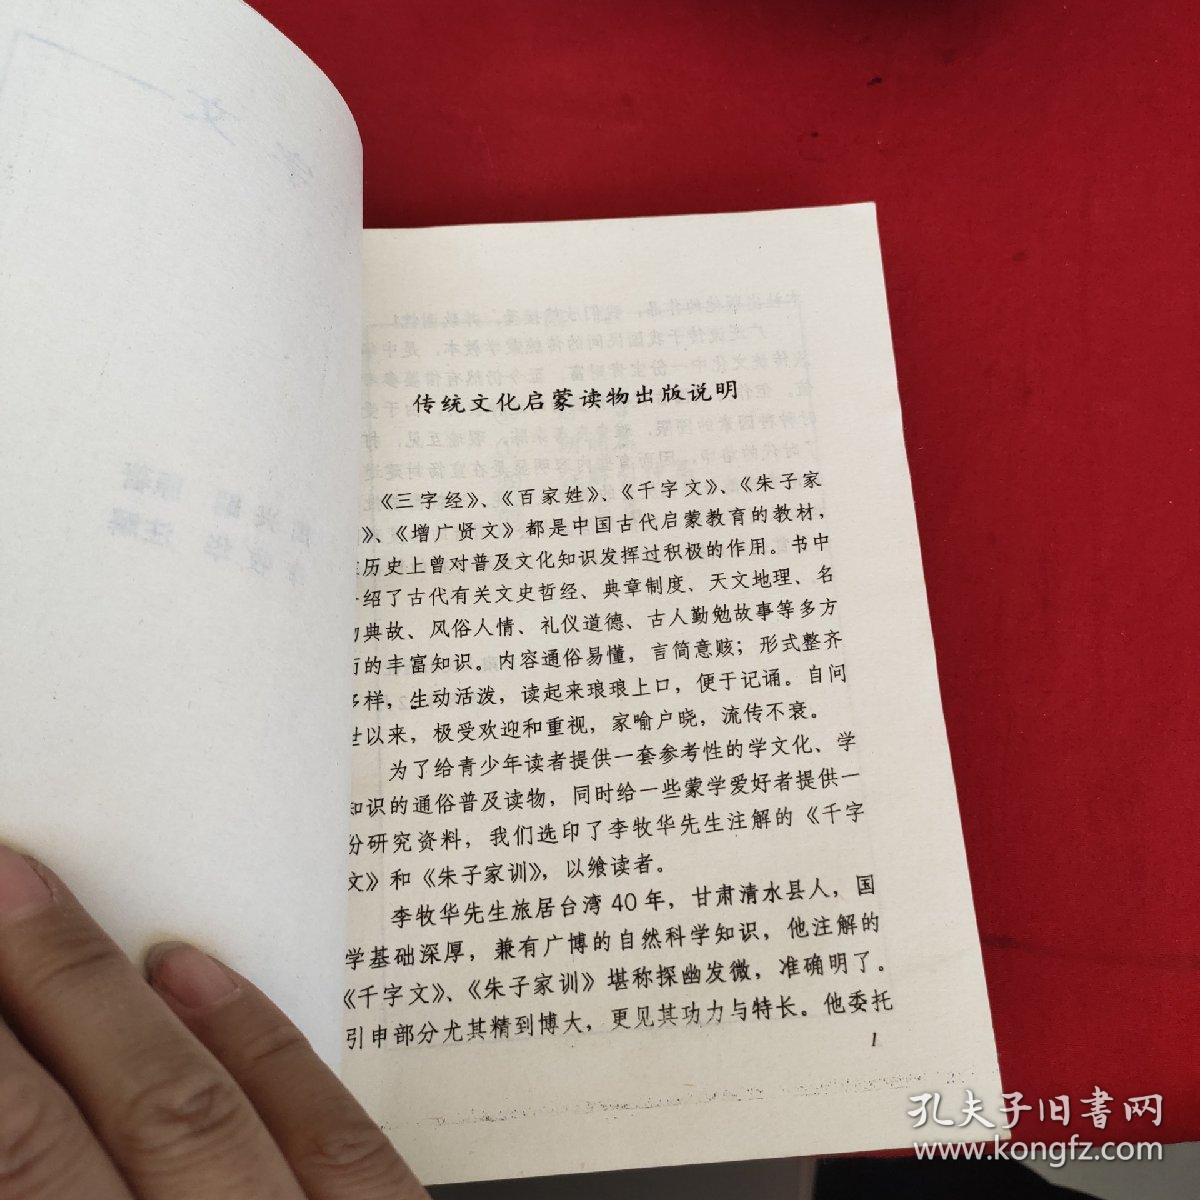 传统文化启蒙读物出版说明
《三字经》、《百家姓》、《千字文》、《朱子家
》、《增广贤文》都是中国古代启蒙教育的教材，
历史上曾对普及文化知识发挥过积极的作用。书中
绍了古代有关文史哲经、典章制度、天文地理、名
典故、风俗人情、礼仪道德、古人勤勉故事等多方
的丰富知识。内容通俗易懂，言简意赅；形式整齐
多样，生动活泼，读起来琅琅上口，便于记诵。自问
世以来，极受欢迎和重视，家喻户晓，流传不衰。
为了给青少年读者提供一套参考性的学文化、学
知识的通俗普及读物，同时给一些蒙学爱好者提供一
份研究资料，我们选印了李牧华先生注解的《千字
文》和《朱子家训》，以飨读者。
李牧华先生旅居台湾40年，甘肃清水县人，国
学基础深厚，兼有广博的自然科学知识，他注解的
《千字文》、《朱子家训》堪称探幽发微，准确明了。
引申部分尤其精到博大，更见其功力与特长。他委托
1
孔夫子旧书网
www.kongfz.com